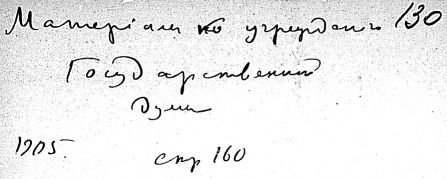 Матеріалы по учрежденію 130
Государственной
Думы
1905.
стр 160